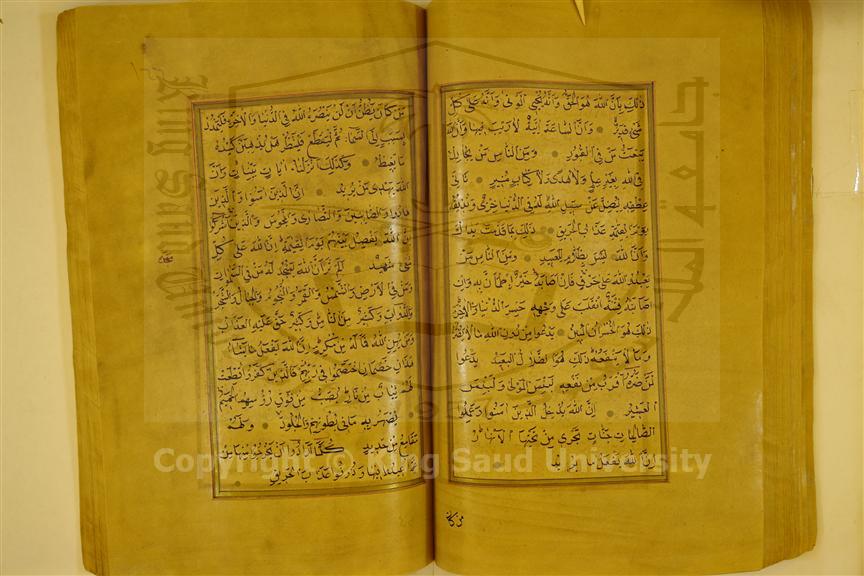 ذلك بأن الله هو الحق وأنه يحيي الموتى وأنه على كل
شيء قدير وأن الساعة آتية لا ريب فيها وأن الله
يبعث من في القبور ومن الناس من يجادل
في الله بغير علم ولا هدى ولا كتاب منير ثاني
عطفه ليضل عن سبيل الله له في الدنيا خزي ونذيقه
يوم القيمة عذاب الحريق ذلك بما قدمت يداك
وأن الله ليس بظلام للعبيد ومن الناس من
يعبد الله على حرف فإن أصابه خير اطمأن به وإن
أصابته فتنة انقلب على وجهه خسر الدنيا والآخرة
ذلك هو الخسران المبين يدعوا من دون الله ما لا يضره
وما لا ينفعه ذلك هو الضلال البعيد يدعوا
لمن ضره أقرب من نفعه لبئس المولى ولبئس
العشير إن الله يدخل الذين آمنوا وعملوا
الصالحات جنات تجري من تحتها الأنهار
إن الله يفعل ما يريد
من كان
من كان يظن أن لن ينصره الله في الدنيا والآخرة فليمدد
بسبب إلى السماء ثم ليقطع فلينظر هل يذهبن كيده
ما يغيظ وكذلك أنزلناه آيات بينات وأن
الله يهدي من يريد إن الذين آمنوا والذين
هادوا والصابئين والنصارى والمجوس والذين أشركوا
إن الله يفصل بينهم يوم القيمة إن الله على كل
شيء شهيد ألم تر أن الله يسجد له من في السموات
ومن في الأرض والشمس والقمر والنجوم والجبال والشجر
والدواب وكثير من الناس وكثير حق عليه العذاب
ومن يهن الله فما له من مكرم إن الله يفعل ما يشاء
هذان خصمان اختصموا في ربهم فالذين كفروا قطعت
لهم ثياب من نار يصب من فوق رؤسهم الحميم
يصهر به ما في بطونهم والجلود ولهم
مقامع من حديد كلما أرادوا أن يخرجوا منها من
غم أعيدوا فيها وذوقوا عذاب الحريق
Copyright © King Saud University
King Saud University
جامعة الملك